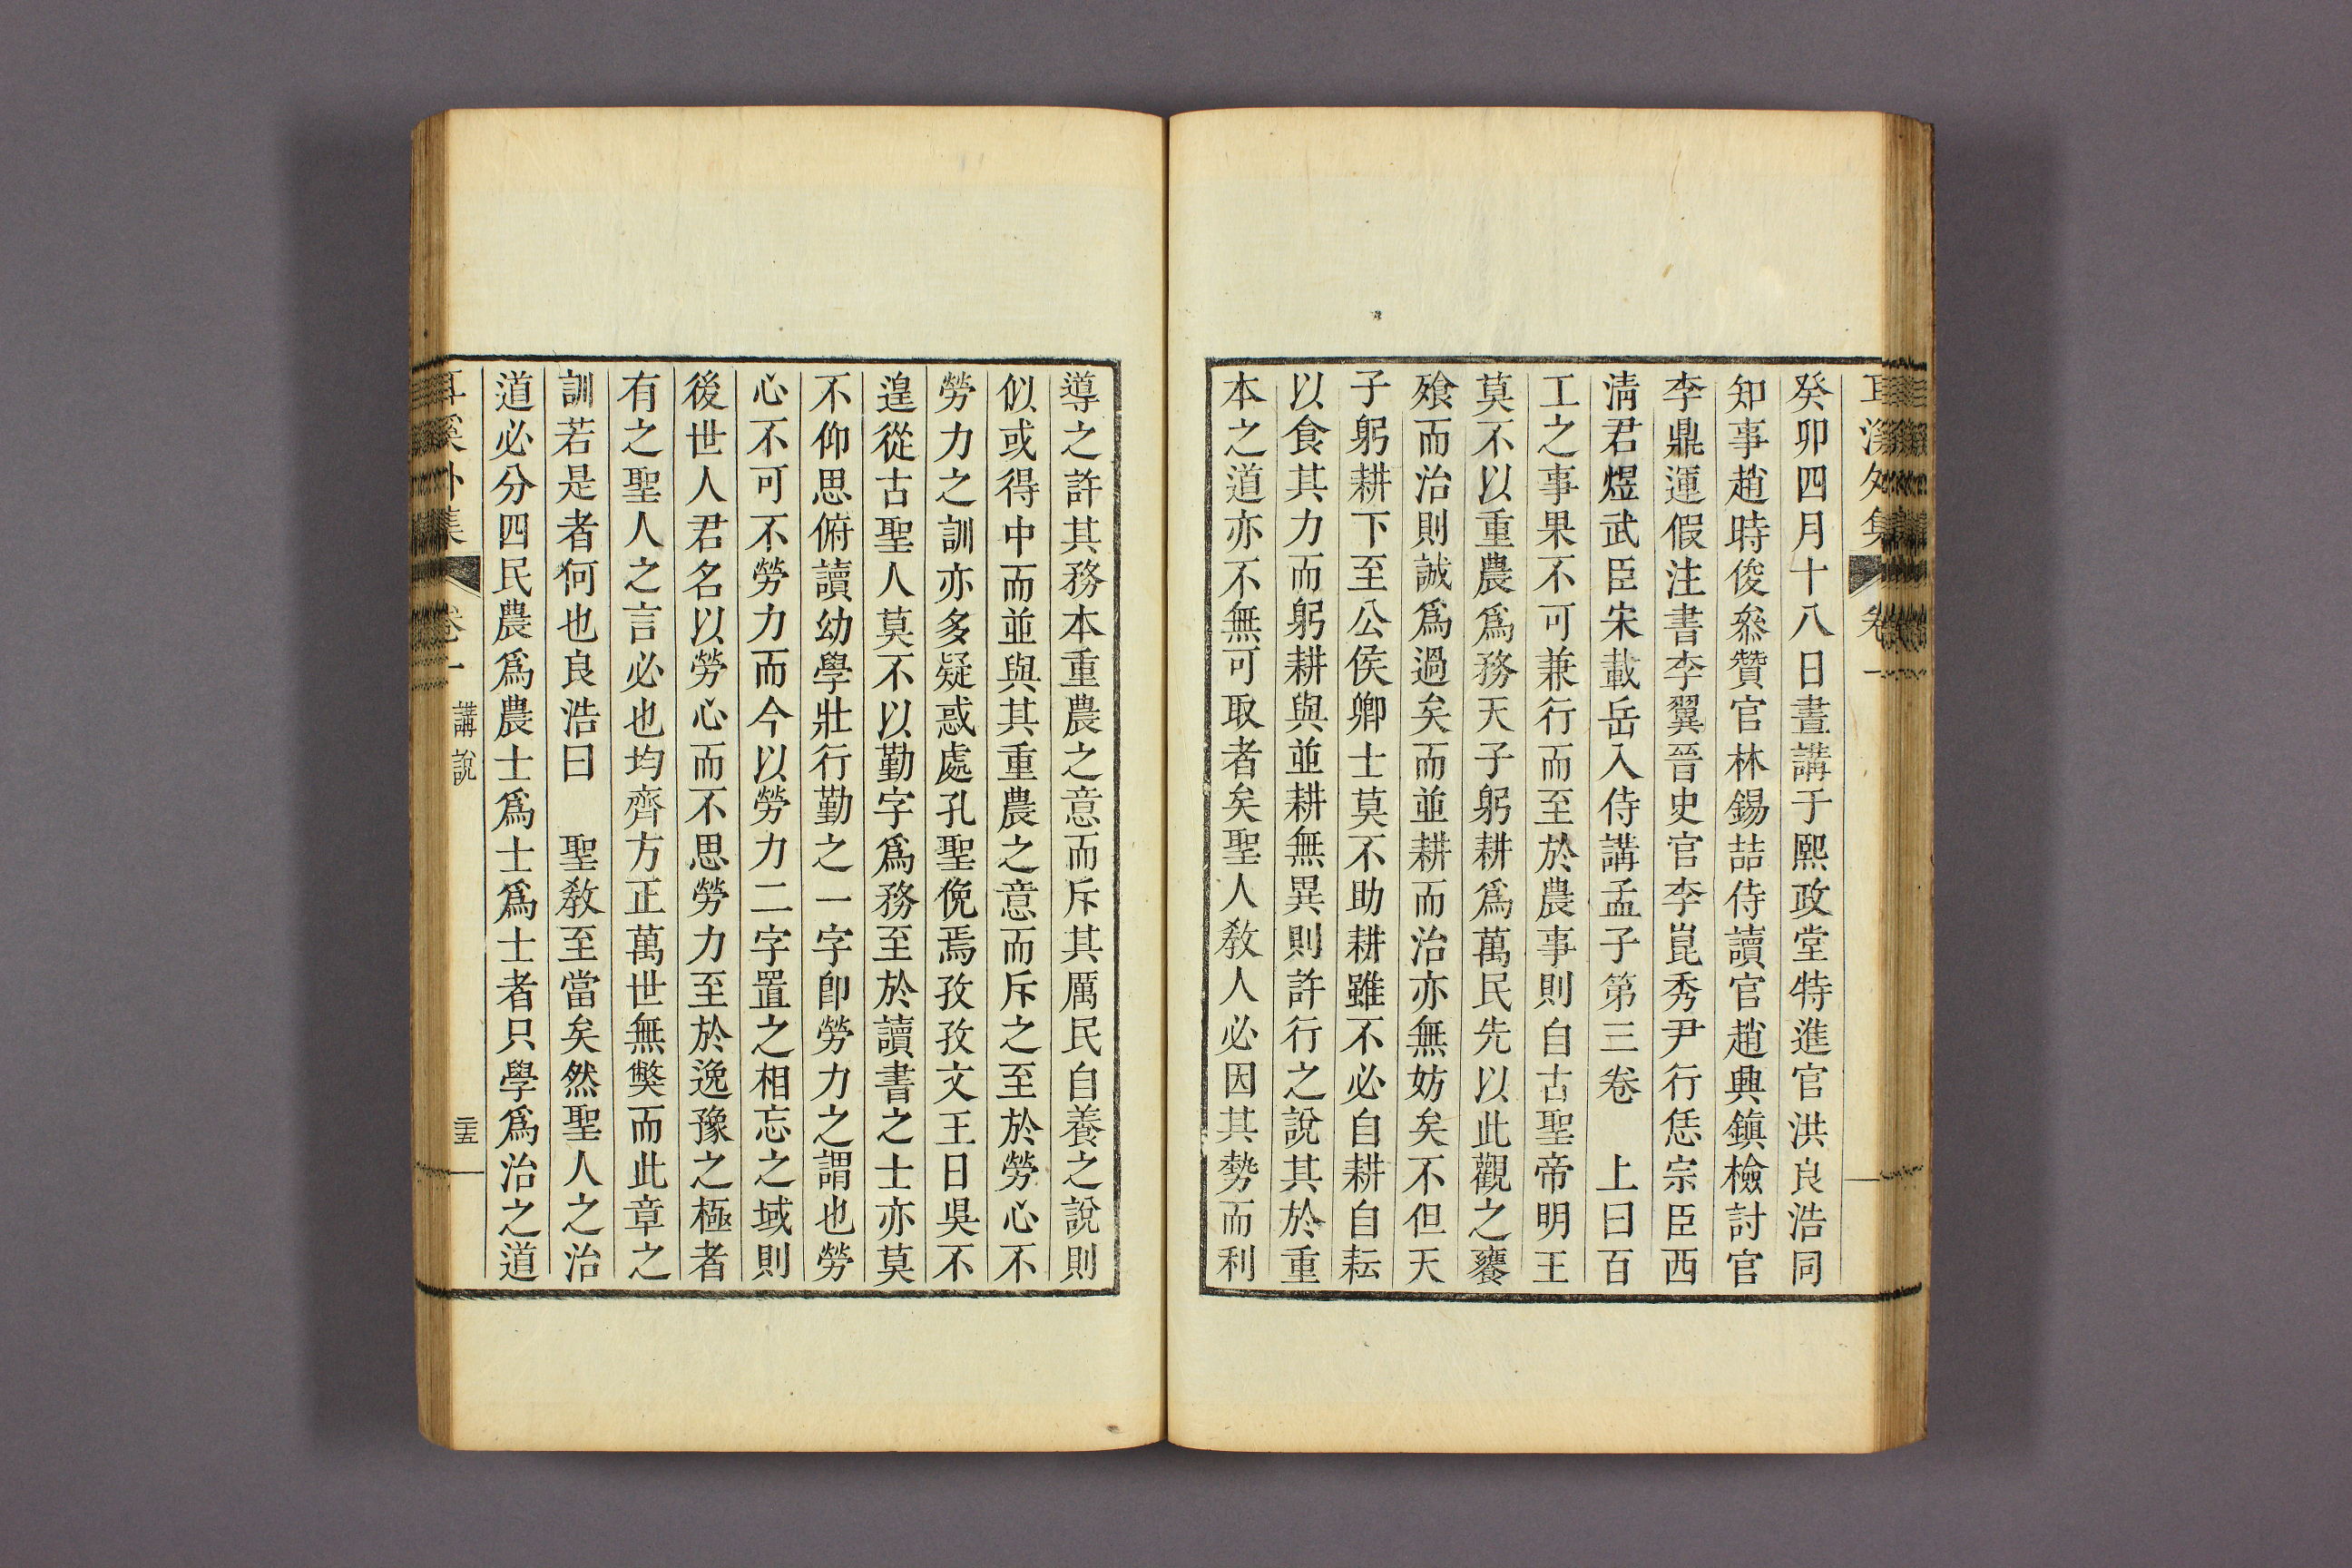 耳溪外集 卷一
癸卯四月十八日晝講于熙政堂特進官洪良浩同
知事趙時俊叅贊官林錫喆侍讀官趙興鎭檢討官
李鼎運假注書李翼晉史官李崑秀尹行恁宗臣西
淸君煜武臣宋載岳入侍講孟子第三卷 上曰百
工之事果不可兼行而至於農事則自古聖帝明王
莫不以重農爲務天子躬耕爲萬民先以此觀之饔
飱而治則誠爲過矣而並耕而治亦無妨矣不但天
子躬耕下至公侯卿士莫不助耕雖不必自耕自耘
以食其力而躬耕與並耕無異則許行之說其於重
本之道亦不無可取者矣聖人敎人必因其勢而利
導之許其務本重農之意而斥其厲民自養之說則
似或得中而並與其重農之意而斥之至於勞心不
勞力之訓亦多疑惑處孔聖俛焉孜孜文王日吳不
遑從古聖人莫不以勤字爲務至於讀書之士亦莫
不仰思俯讀幼學壯行勤之一字卽勞力之謂也勞
心不可不勞力而今以勞力二字置之相忘之域則
後世人君名以勞心而不思勞力至於逸豫之極者
有之聖人之言必也均齊方正萬世無獘而此章之
訓若是者何也良浩曰 聖敎至當矣然聖人之治
道必分四民農爲農士爲士爲士者只學爲治之道
耳溪外集 卷十 講說 二十五